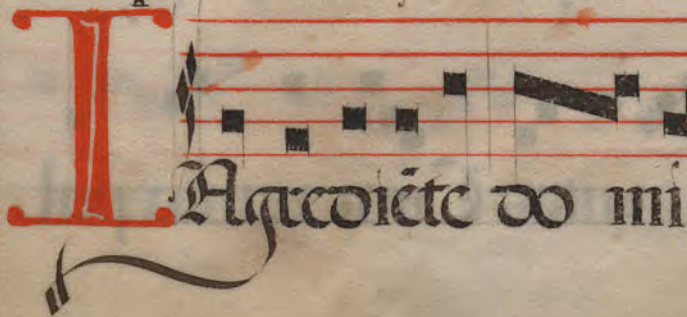 INgrediēte do mi